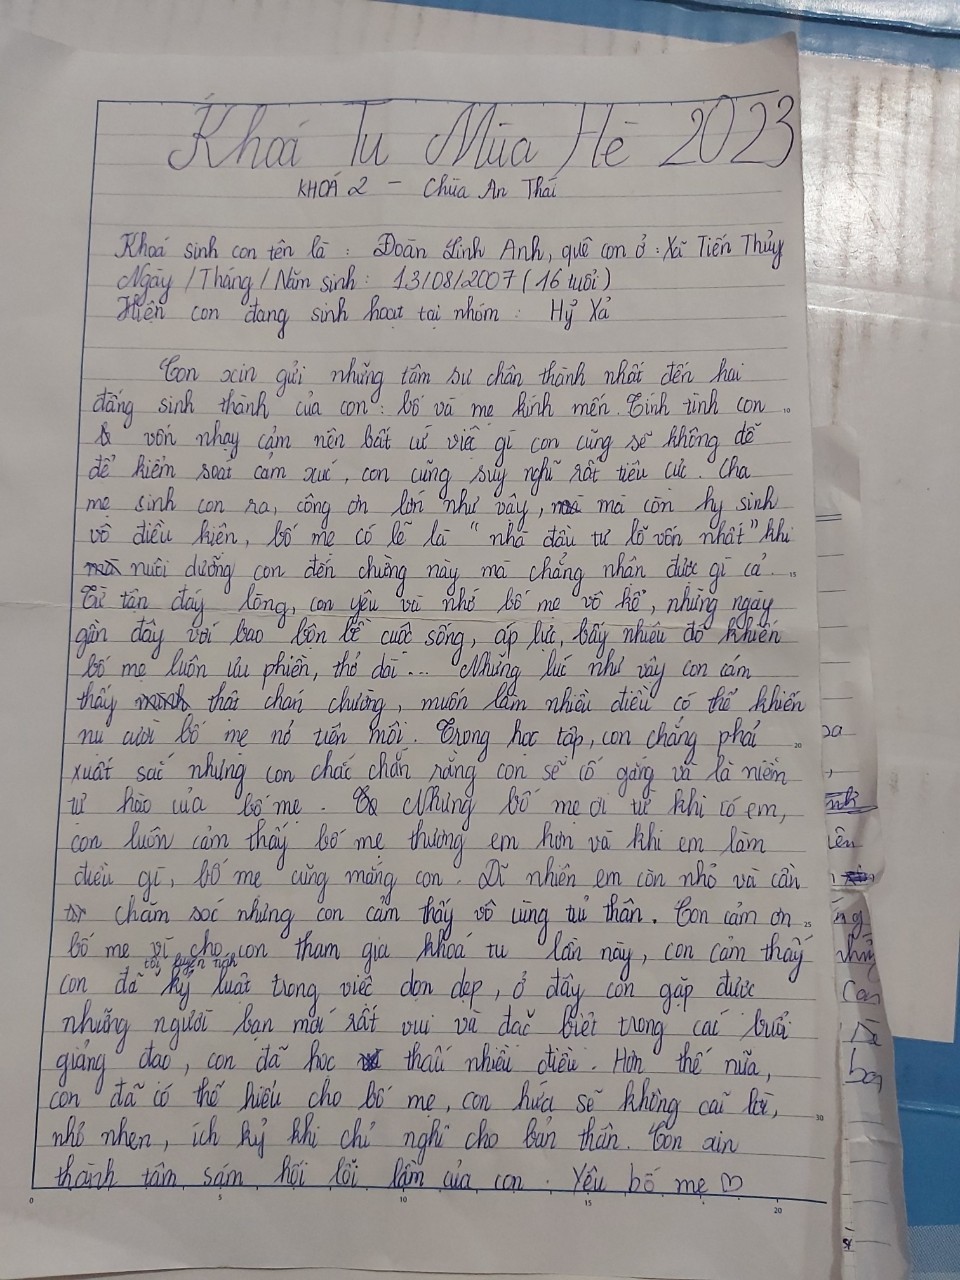 Khoá Tu Mùa Hè 2023
KHOÁ 2 - Chùa An Thái
Khoá sinh con tên là : Đoàn Linh Anh, quê con ở : Xã Tiến Thủy
Ngày / Tháng / Năm sinh : 13/08/2007 ( 16 tuổi )
Hiện con đang sinh hoạt tại nhóm : Hỷ Xả
Con xin gửi những tâm sự chân thành nhất đến hai
đấng sinh thành của con : bố và mẹ kính mến. Tính tình con
vốn nhạy cảm nên bất cứ việc gì con cũng sẽ không dễ
để kiểm soát cảm xúc, con cũng suy nghĩ rất tiêu cực. Cha
mẹ sinh con ra, công ơn lớn như vậy, mà còn hy sinh
vô điều kiện, bố mẹ có lẽ là "nhà đầu tư lỗ vốn nhất" khi
nuôi dưỡng con đến chừng này mà chẳng nhận được gì cả.
Từ tận đáy lòng, con yêu và nhớ bố mẹ vô kể, những ngày
gần đây với bao bộn bề cuộc sống, áp lực, bấy nhiêu đó khiến
bố mẹ luôn ưu phiền, thở dài ... Những lúc như vậy con cảm
thấy thật chán chường, muốn làm nhiều điều có thể khiến
nụ cười bố mẹ nở trên môi. Trong học tập, con chẳng phải
xuất sắc nhưng con chắc chắn rằng con sẽ cố gắng và là niềm
tự hào của bố mẹ. Nhưng bố mẹ ơi từ khi có em,
con luôn cảm thấy bố mẹ thương em hơn và khi em làm
điều gì, bố mẹ cũng mắng con. Dĩ nhiên em còn nhỏ và cần
chăm sóc nhưng con cảm thấy vô cùng tủi thân. Con cảm ơn
bố mẹ vì cho con tham gia khoá tu lần này, con cảm thấy
con đã kỷ luật trong việc dọn dẹp, ở đây con gặp được
những người bạn mới rất vui và đặc biệt trong các buổi
giảng đạo, con đã học thấu nhiều điều. Hơn thế nữa,
con đã có thể hiểu cho bố mẹ, con hứa sẽ không cãi lời,
nhỏ nhen, ích kỷ khi chỉ nghĩ cho bản thân. Con xin
thành tâm sám hối lỗi lầm của con. Yêu bố mẹ ♡